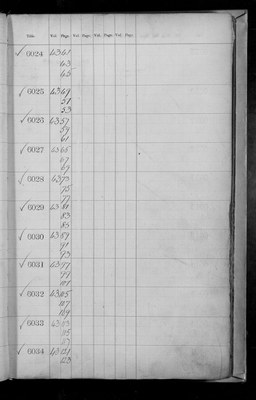 Vol. Page. Vol. Page. Vol. Page. Vol. Page.
✓ 0024 43 41
43
45
✓ 0025 43 49
51
53
✓ 0026 43 57
59
61
✓ 0027 43 65
67
69
✓ 0028 43 73
75
77
✓ 0029 43 81
83
85
✓ 0030 43 89
91
93
✓ 0031 43 97
99
101
✓ 0032 43 105
107
109
✓ 0033 43 113
115
✓ 0034 43 121
123